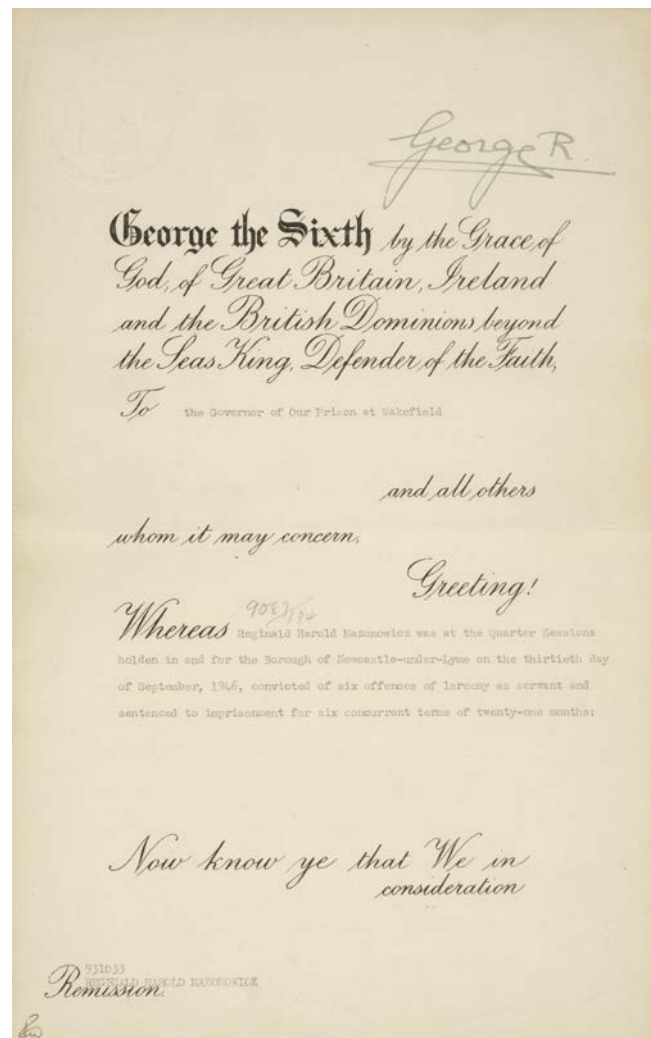 George R.
George the Sixth by the Grace of
God, of Great Britain, Ireland
and the British Dominions beyond
the Seas King, Defender of the Faith,
To the Governor of Our Prison at Wakefield
and all others
whom it may concern,
Greeting!
Whereas Reginald Harold Mazonowicz was at the Quarter Sessions
holden in and for the Borough of Newcastle-under-Lyme on the thirtieth day
of September, 1946, convicted of six offences of larceny as servant and
sentenced to imprisonment for six concurrent terms of twenty-one months:
Now know ye that We in
consideration
931033
REGINALD HAROLD MAZONOWICZ
Remission.